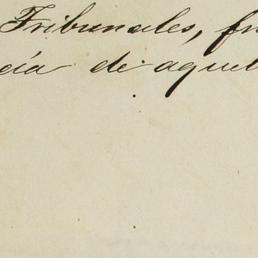 Tribunales, fr
cía de aquel